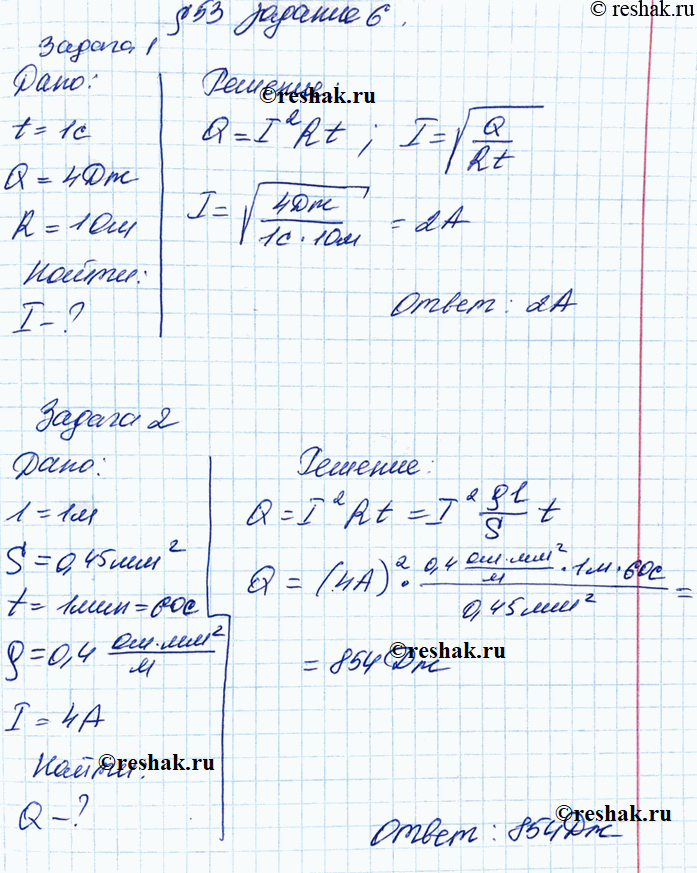 © reshak.ru
§53 Задание 6.
Задача 1
Дано:
t = 1с
Q = 4Дж
R = 1Ом
Найти:
I – ?
Решение:
©reshak.ru
Q = I²Rt ; I = √(Q/Rt)
I = √(4Дж/1с·1Ом) = 2А
Ответ: 2А
Задача 2
Дано:
l = 1м
S = 0,45мм²
t = 1мин = 60с
ρ = 0,4 Ом·мм²/м
I = 4А
Найти:
©reshak.ru
Q – ?
Решение:
Q = I²Rt = I² ρl/S t
Q = (4А)² · 0,4 Ом·мм²/м · 1м · 60с / 0,45мм² =
= 854 Дж
©reshak.ru
Ответ: 854Дж